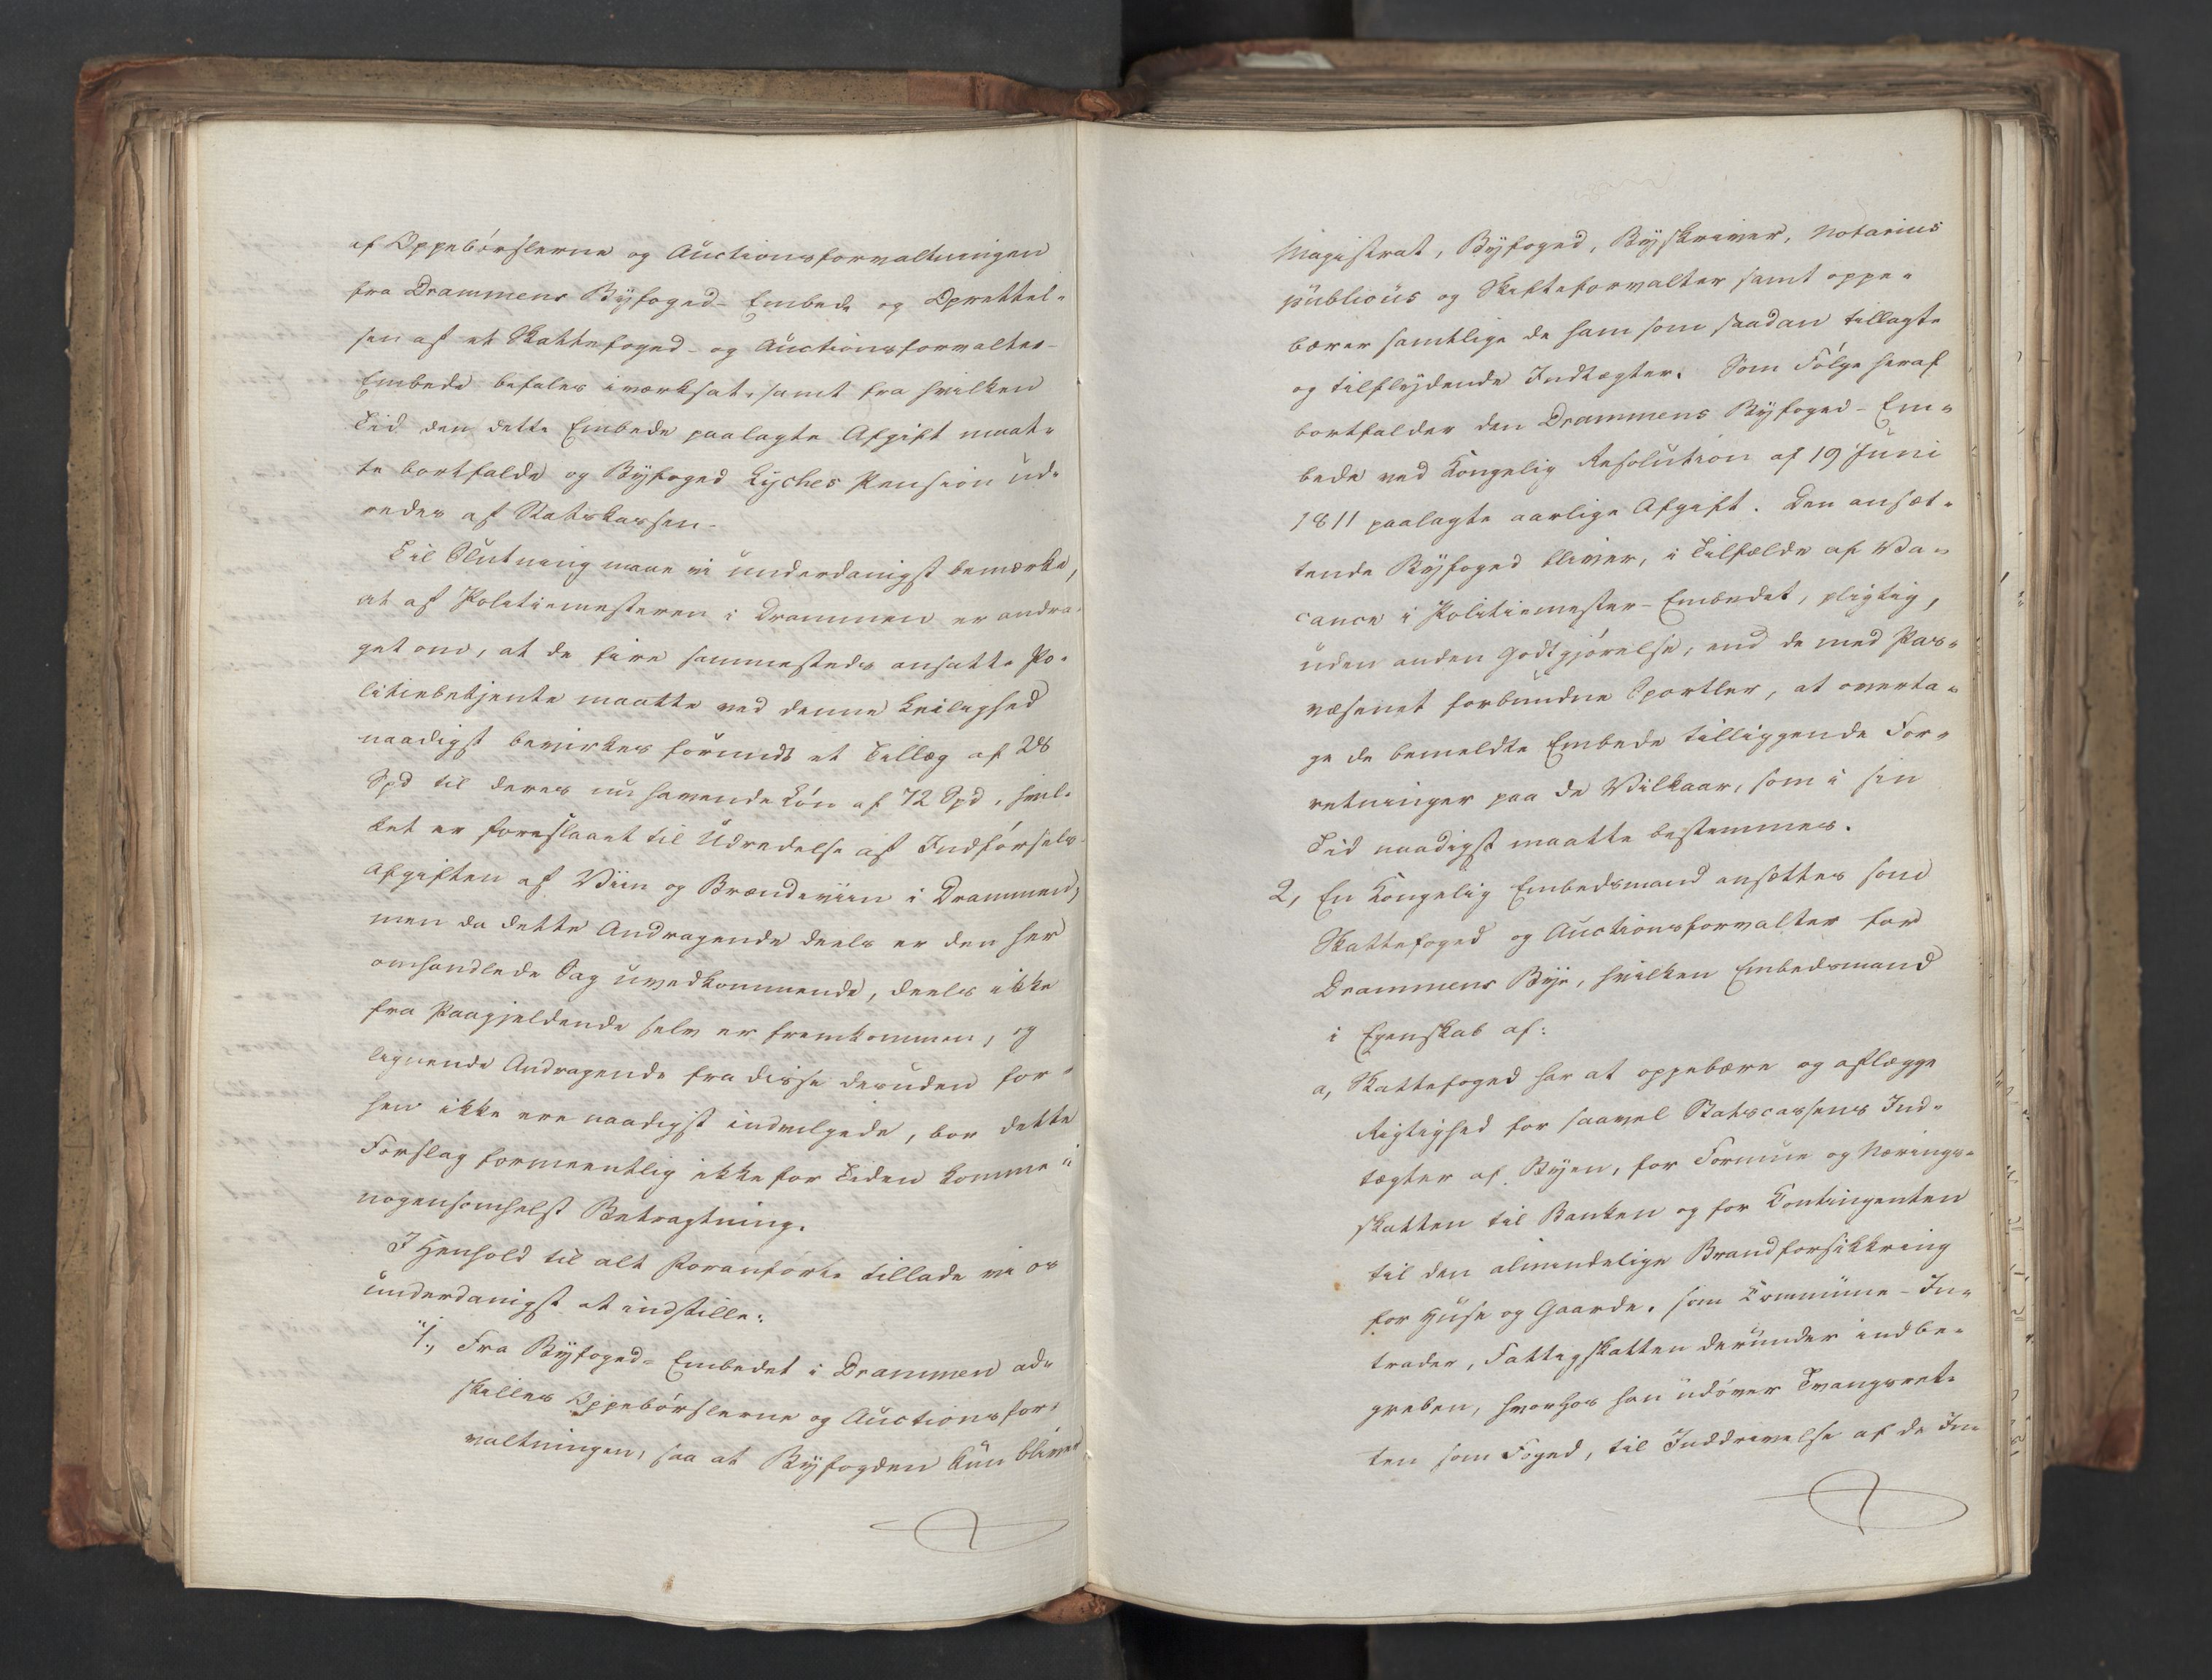 af Oppebörslerne og Auctionsforvaltningen
fra Drammens Byfoged-Embede og Oprettel-
sen af et Skattefoged- og Auctionsforvalter-
Embede befales iværksat, samt fra hvilken
Tid den dette Embede paalagte Afgift maat-
te bortfalde og Byfoged Lyches Pension ud-
redes af Statskassen.
Til Slutning maae vi underdanigst bemærke,
at af Politiemesteren i Drammen er andra-
get om, at de fire sammesteds ansatte Po-
litiebetjente maatte ved denne Leilighed
naadigst bevirkes forundt et Tillæg af 28
Spd til deres nu havende Lön af 72 Spd, hvil-
ket er foreslaaet til Udredelse af Indförsels-
afgiften af Viin og Brændeviin i Drammen,
men da dette Andragende deels er den her
omhandlede Sag uvedkommende, deels ikke
fra Paagjeldende selv er fremkommen, og
lignende Andragende fra disse desuden for-
hen ikke ere naadigst indvilgede, bör dette
Forslag formeentlig ikke for Tiden komme i
nogensomhelst Betragtning.
I Henhold til alt Foranförte tillade vi os
underdanigst at indstille:
"1., Fra Byfoged-Embedet i Drammen ad-
skilles Oppebörslerne og Auctionsfor-
valtningen, saa at Byfogden kun bliver
Magistrat, Byfoged, Byskriver, Notarius
publicus og Skifteforvalter samt oppe-
bærer samtlige de ham som saadan tillagte
og tilflydende Indtægter. Som Fölge heraf
bortfalder den Drammens Byfoged-Em-
bede ved Kongelig Resolution af 19 Juni
1811 paalagte aarlige Afgift. Den ansæt-
tende Byfoged bliver, i Tilfælde af Va-
cance i Politiemester-Embedet, pligtig,
uden anden Godtgjörelse, end de med Pas-
væsenet forbundne Sportler, at overta-
ge de bemeldte Embede tilliggende For-
retninger paa de Vilkaar, som i sin
Tid naadigst maatte bestemmes.
2, En Kongelig Embedsmand ansættes som
Skattefoged og Auctionsforvalter for
Drammens Bye, hvilken Embedsmand
i Egenskab af:
a, Skattefoged har at oppebære og aflægge
Rigtighed for saavel Statscassens Ind-
tægter af Byen, for Formue og Nærings-
skatten til Banken og for Contingenten
til den almindelige Brandforsikkring
for Huse og Gaarde, som Commune-In-
trader, Fattigskatten derunder indbe-
greben, hvorhos han udöver Tvangsret-
ten som Foged, til Inddrivelse af de In-